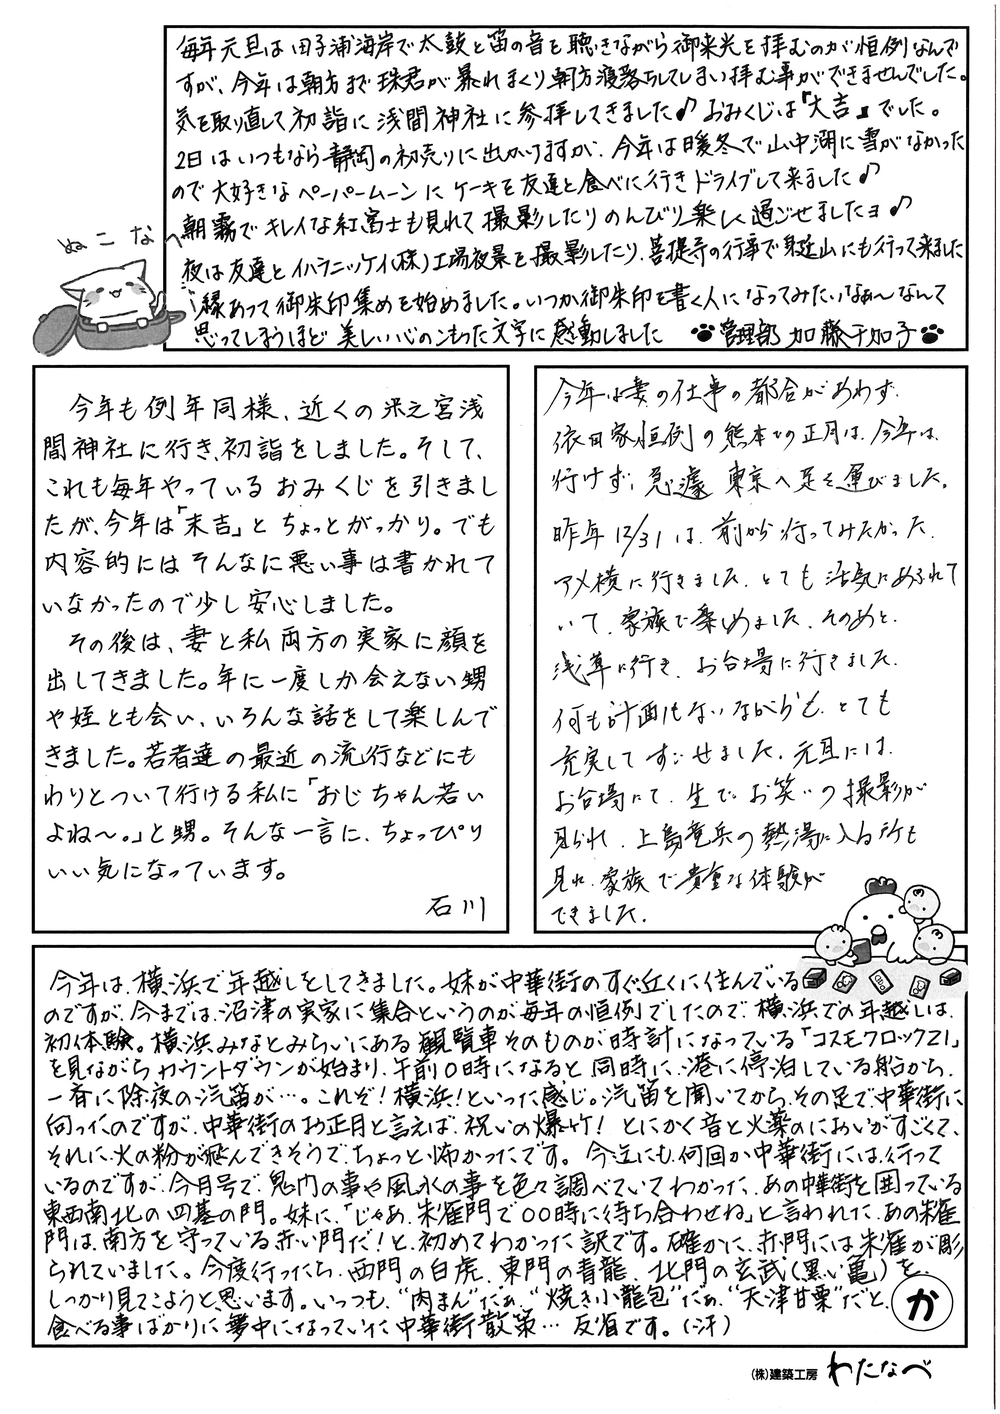 毎年元旦は田子浦海岸で太鼓と笛の音を聴きながら御来光を拝むのが恒例なんで
すが、今年は朝方まで珠君が暴れまくり朝方寝落ちしてしまい拝む事ができませんでした。
気を取り直して初詣に浅間神社に参拝してきました♪おみくじは『大吉』でした。
2日はいつもなら静岡の初売りに出かけますが、今年は暖冬で山中湖に雪がなかった
ので大好きなペーパームーンにケーキを友達と食べに行きドライブして来ました♪
朝霧でキレイな紅富士も見れて撮影したりのんびり楽しく過ごせましたョ♪
夜は友達とイハラニッケイ(株)工場夜景を撮影したり、菩提寺の行事で身延山にも行って来ました
縁あって御朱印集めを始めました。いつか御朱印を書く人になってみたいなぁ〜なんて
思ってしまうほど美しい心のこもった文字に感動しました 管理部 加藤千加子
ぬこなべ
今年も例年同様、近くの米之宮浅
間神社に行き、初詣をしました。そして、
これも毎年やっているおみくじを引きまし
たが、今年は「末吉」とちょっとがっかり。でも
内容的にはそんなに悪い事は書かれて
いなかったので少し安心しました。
その後は、妻と私両方の実家に顔を
出してきました。年に一度しか会えない甥
や姪とも会い、いろんな話をして楽しんで
きました。若者達の最近の流行などにも
わりとついて行ける私に「おじちゃん若い
よね〜。」と甥。そんな一言に、ちょっぴり
いい気になっています。
石川
今年は妻の仕事の都合があわず、
依田家恒例の熊本での正月は、今年は、
行けず、急遽 東京へ足を運びました。
昨年12/31は、前から行ってみたかった、
アメ横に行きました。とても活気にあふれて
いて、家族で楽しめました。そのあと、
浅草に行き、お台場に行きました。
何も計画もないながらも、とても
充実してすごせました。元旦には、
お台場にて、生で、お笑いの撮影が
見られ、上島竜兵の熱湯に入る所も
見れ、家族で貴重な体験が
できました。
今年は、横浜で年越しをしてきました。妹が中華街のすぐ近くに住んでいる
のですが、今までは、沼津の実家に集合というのが毎年の恒例でしたので、横浜での年越しは、
初体験。横浜みなとみらいにある観覧車そのものが時計になっている「コスモクロック21」
を見ながらカウントダウンが始まり、午前0時になると同時に、港に停泊している船から、
一斉に除夜の汽笛が…。これぞ！横浜！といった感じ。汽笛を聞いてから、その足で、中華街に
向ったのですが、中華街のお正月と言えば、祝いの爆竹！とにかく音と火薬のにおいがすごくて、
それに、火の粉が飛んできそうで、ちょっと怖かったです。今迄にも、何回か中華街には、行って
いるのですが、今月号で、鬼門の事や風水の事を色々調べていてわかった、あの中華街を囲っている
東西南北の四基の門。妹に、「じゃあ、朱雀門で○○時に待ち合わせね」と言われた、あの朱雀
門は、南方を守っている赤い門だ！と、初めてわかった訳です。確かに、赤門には朱雀が彫
られていました。今度行ったら、西門の白虎、東門の青龍、北門の玄武(黒い亀)を、
しっかり見てこようと、思います。いっつも、“肉まん”だぁ、“焼き小龍包”だぁ、“天津甘栗”だと、
食べる事ばかりに夢中になっていた中華街散策…反省です。(汗)
か
(株)建築工房 わたなべ